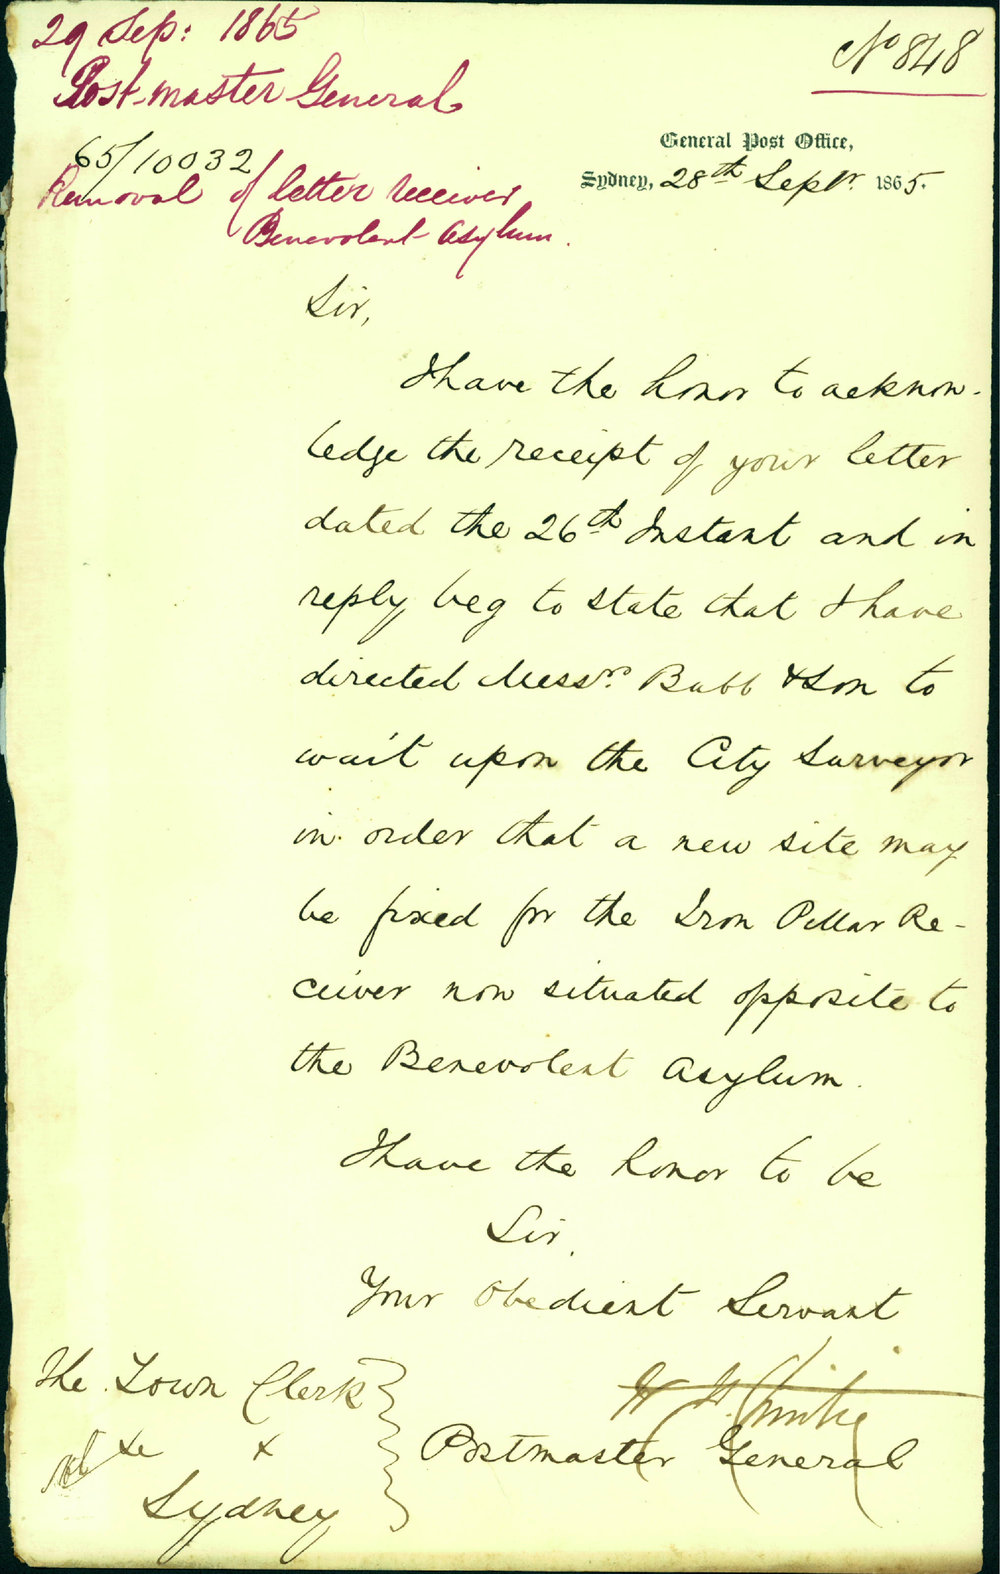 29 Sep: 1865
Post-master General
No 848
65/10032
Removal of letter receiver
Benevolent Asylum.
General Post Office,
Sydney, 28th Septr. 1865.
Sir,
I have the honor to acknow-
ledge the receipt of your letter
dated the 26th Instant and in
reply beg to state that I have
directed Messrs. Bubb & Son to
wait upon the City Surveyor
in order that a new site may
be fixed for the Iron Pillar Re-
ceiver now situated opposite to
the Benevolent Asylum.
I have the honor to be
Sir,
Your Obedient Servant
W. H. Christie
Postmaster General
The Town Clerk
&c &
Sydney